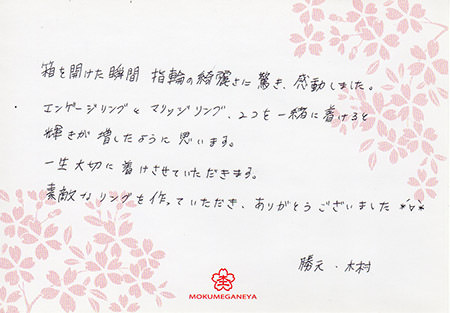 箱を開けた瞬間 指輪の綺麗さに驚き、感動しました。
エンゲージリングとマリッジリング、2つを一緒に着けると
輝きが増したように思います。
一生大切に着けさせていただきます。
素敵なリングを作っていただき、ありがとうございました *ˊᵕˋ*
勝元・木村
MOKUMEGANEYA